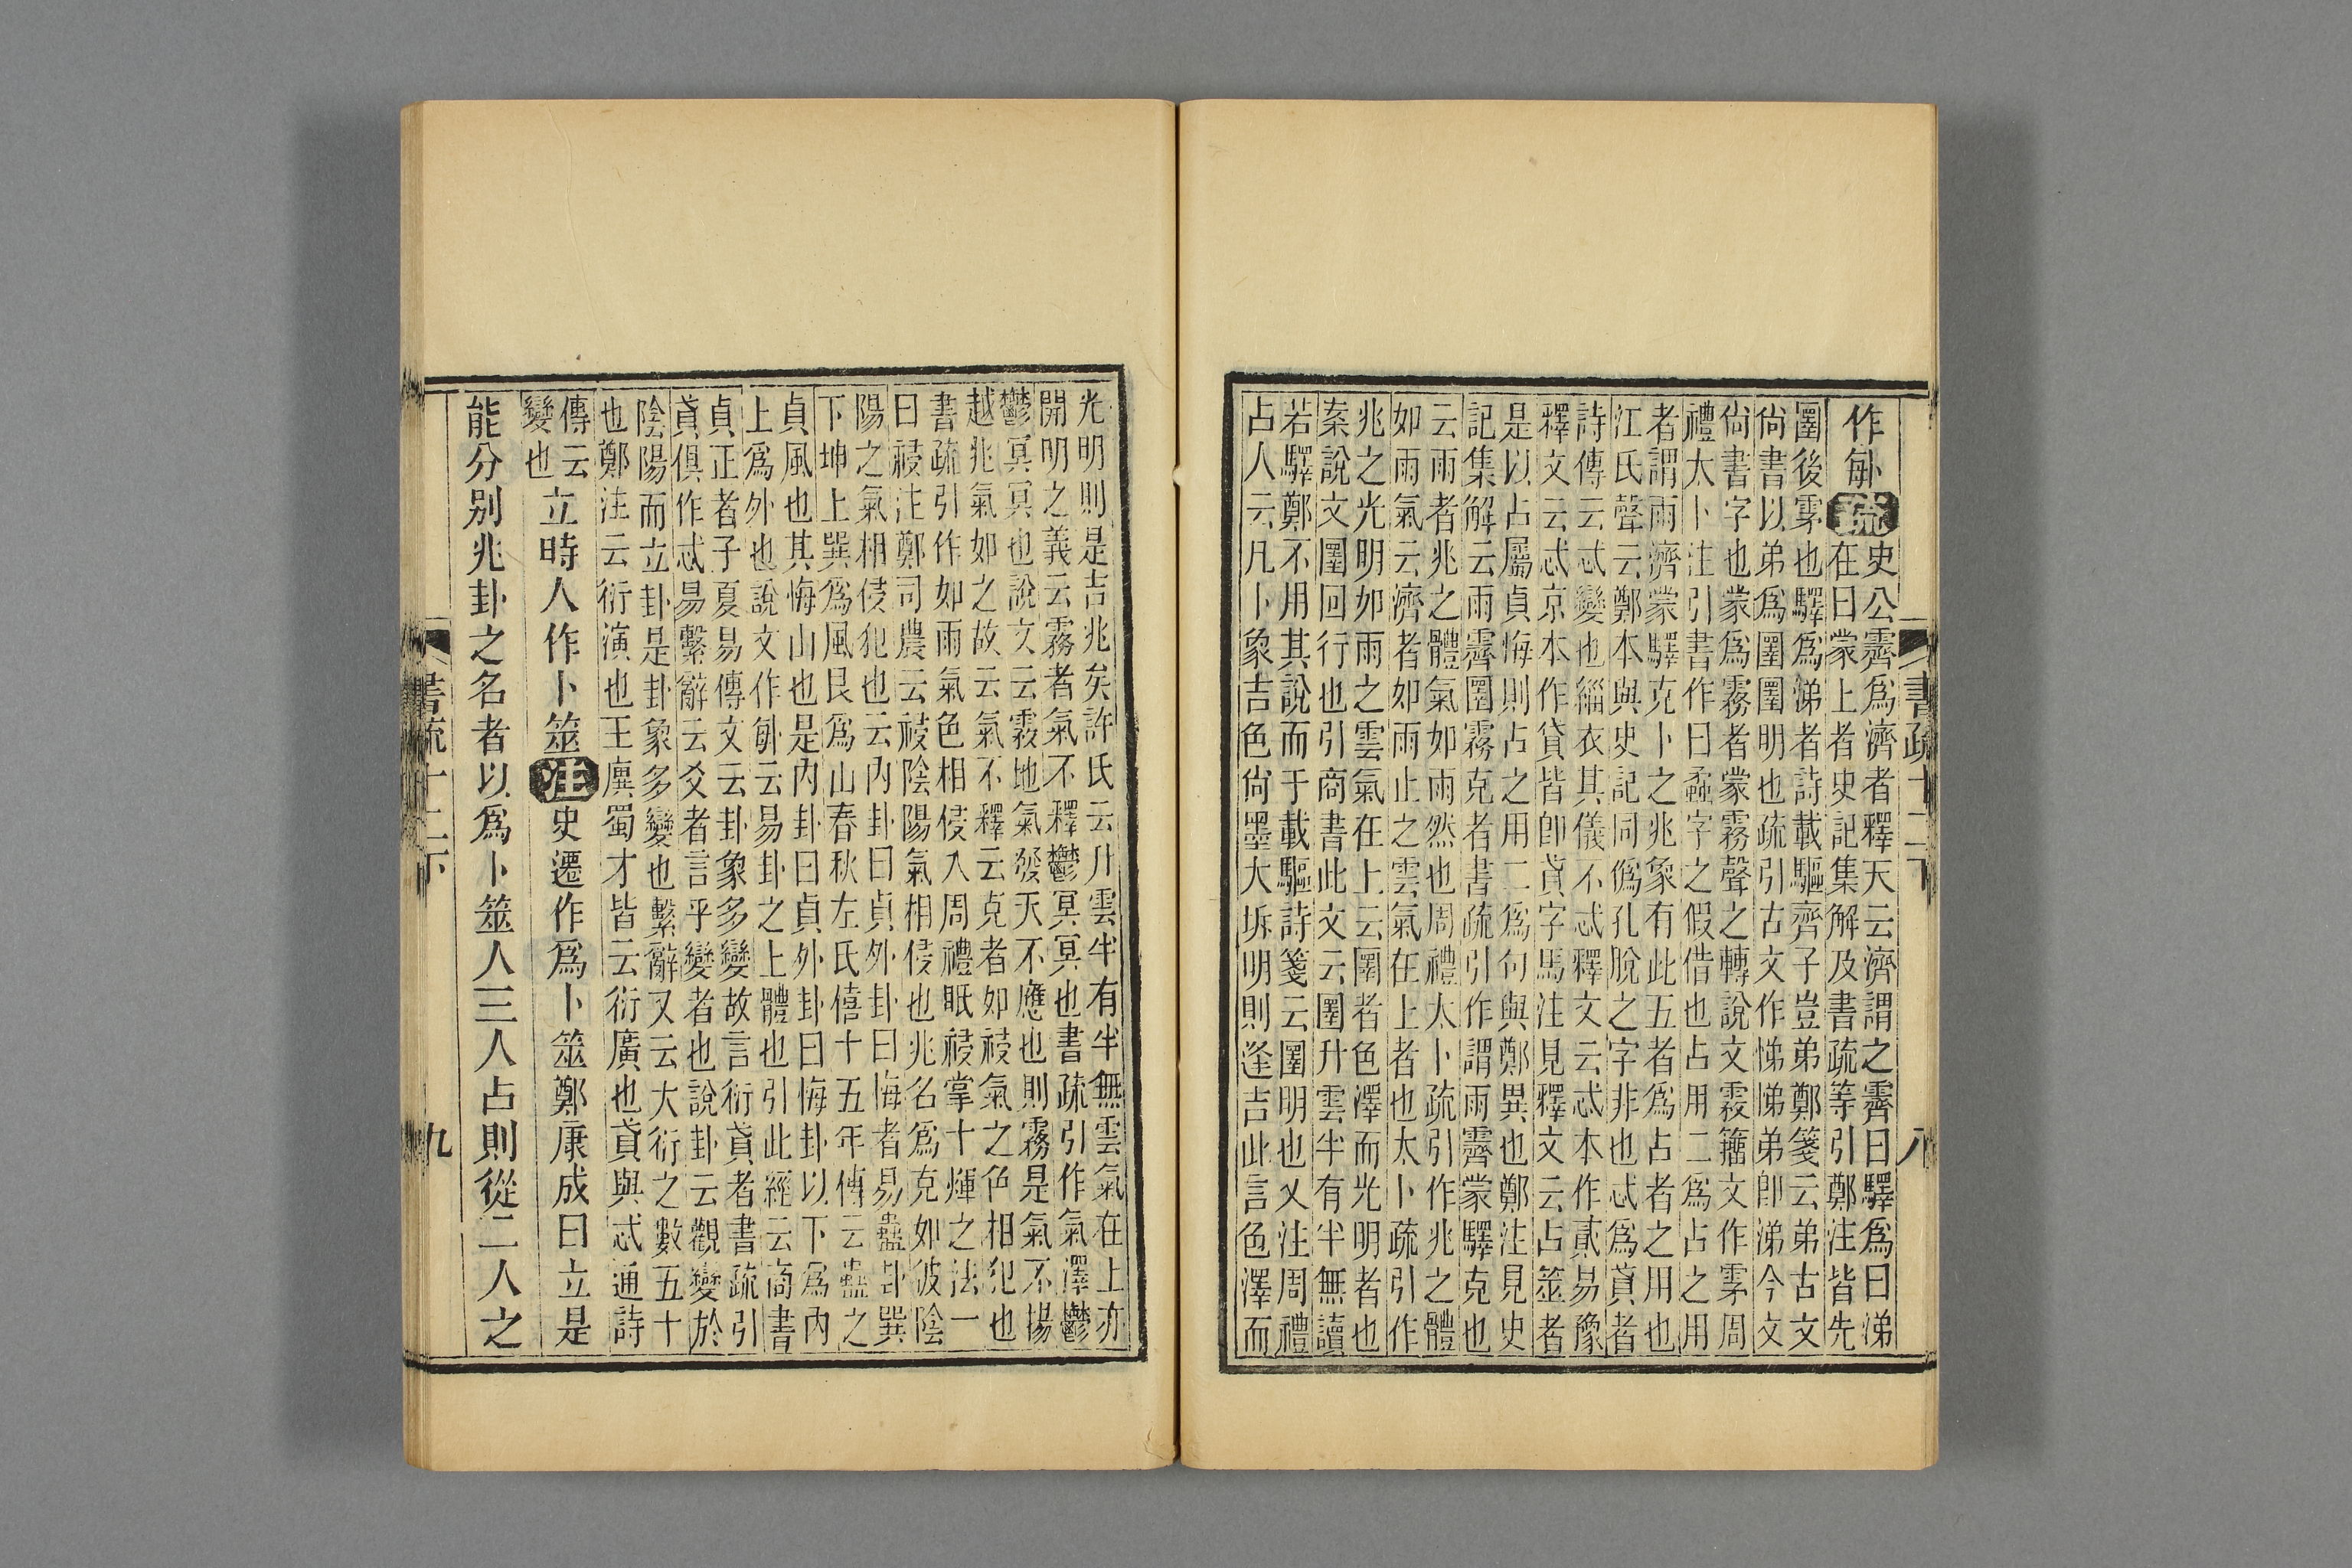 書疏十二下
八
作𠧩疏
史公霽爲濟者釋天云濟謂之霽曰驛爲曰涕
在曰蒙上者史記集解及書疏等引鄭注皆先
圛後雺也驛爲涕者詩載驅齊子豈弟鄭箋云弟古文
尙書以弟爲圛圛明也疏引古文作悌悌弟卽涕今文
尙書字也蒙爲霧者蒙霧聲之轉說文霚籒文作雺周
禮太卜注引書作曰蟊字之假借也占用二爲占之用
者謂雨濟蒙驛克卜之兆象有此五者爲占者之用也
江氏聲云鄭本與史記同僞孔脫之字非也忒爲貣者
詩傳云忒變也緇衣其儀不忒釋文云忒本作貳易豫
釋文云忒京本作貸皆卽貣字馬注見釋文云占筮者
是以占屬貞悔則占之用二爲句與鄭異也鄭注見史
記集解云雨霽圛霧克者書疏引作謂雨霽蒙驛克也
云雨者兆之體氣如雨然也周禮太卜疏引作兆之體
如雨氣云濟者如雨止之雲氣在上者也太卜疏引作
兆之光明如雨之雲氣在上云圛者色澤而光明者也
案說文圛回行也引商書此文云圛升雲半有半無讀
若驛鄭不用其說而于載驅詩箋云圛明也又注周禮
占人云凡卜象吉色尙墨大坼明則逢吉此言色澤而
光明則是吉兆矣許氏云升雲半有半無雲氣在上亦
開明之義云霧者氣不釋鬱冥冥也書疏引作氣澤鬱
鬱冥冥也說文云霚地氣發天不應也則霧是氣不揚
越兆氣如之故云氣不釋云克者如祲氣之色相犯也
書疏引作如雨氣色相侵入周禮眡祲掌十煇之法一
曰祲注鄭司農云祲陰陽氣相侵也兆名爲克如彼陰
陽之氣相侵犯也云內卦曰貞外卦曰悔者易蠱卦巽
下坤上巽爲風艮爲山春秋左氏僖十五年傳云蠱之
貞風也其悔山也是內卦曰貞外卦曰悔卦以下爲內
上爲外也說文作𠧩云易卦之上體也引此經云商書
貞正者子夏易傳文云卦象多變故言衍貣者書疏引
貣俱作忒易繫辭云爻者言乎變者也說卦云觀變於
陰陽而立卦是卦象多變也繫辭又云大衍之數五十
也鄭注云衍演也王廙蜀才皆云衍廣也貣與忒通詩
傳云
變也
立時人作卜筮注史遷作爲卜筮鄭康成曰立是
能分別兆卦之名者以爲卜筮人三人占則從二人之
書疏十二下
九